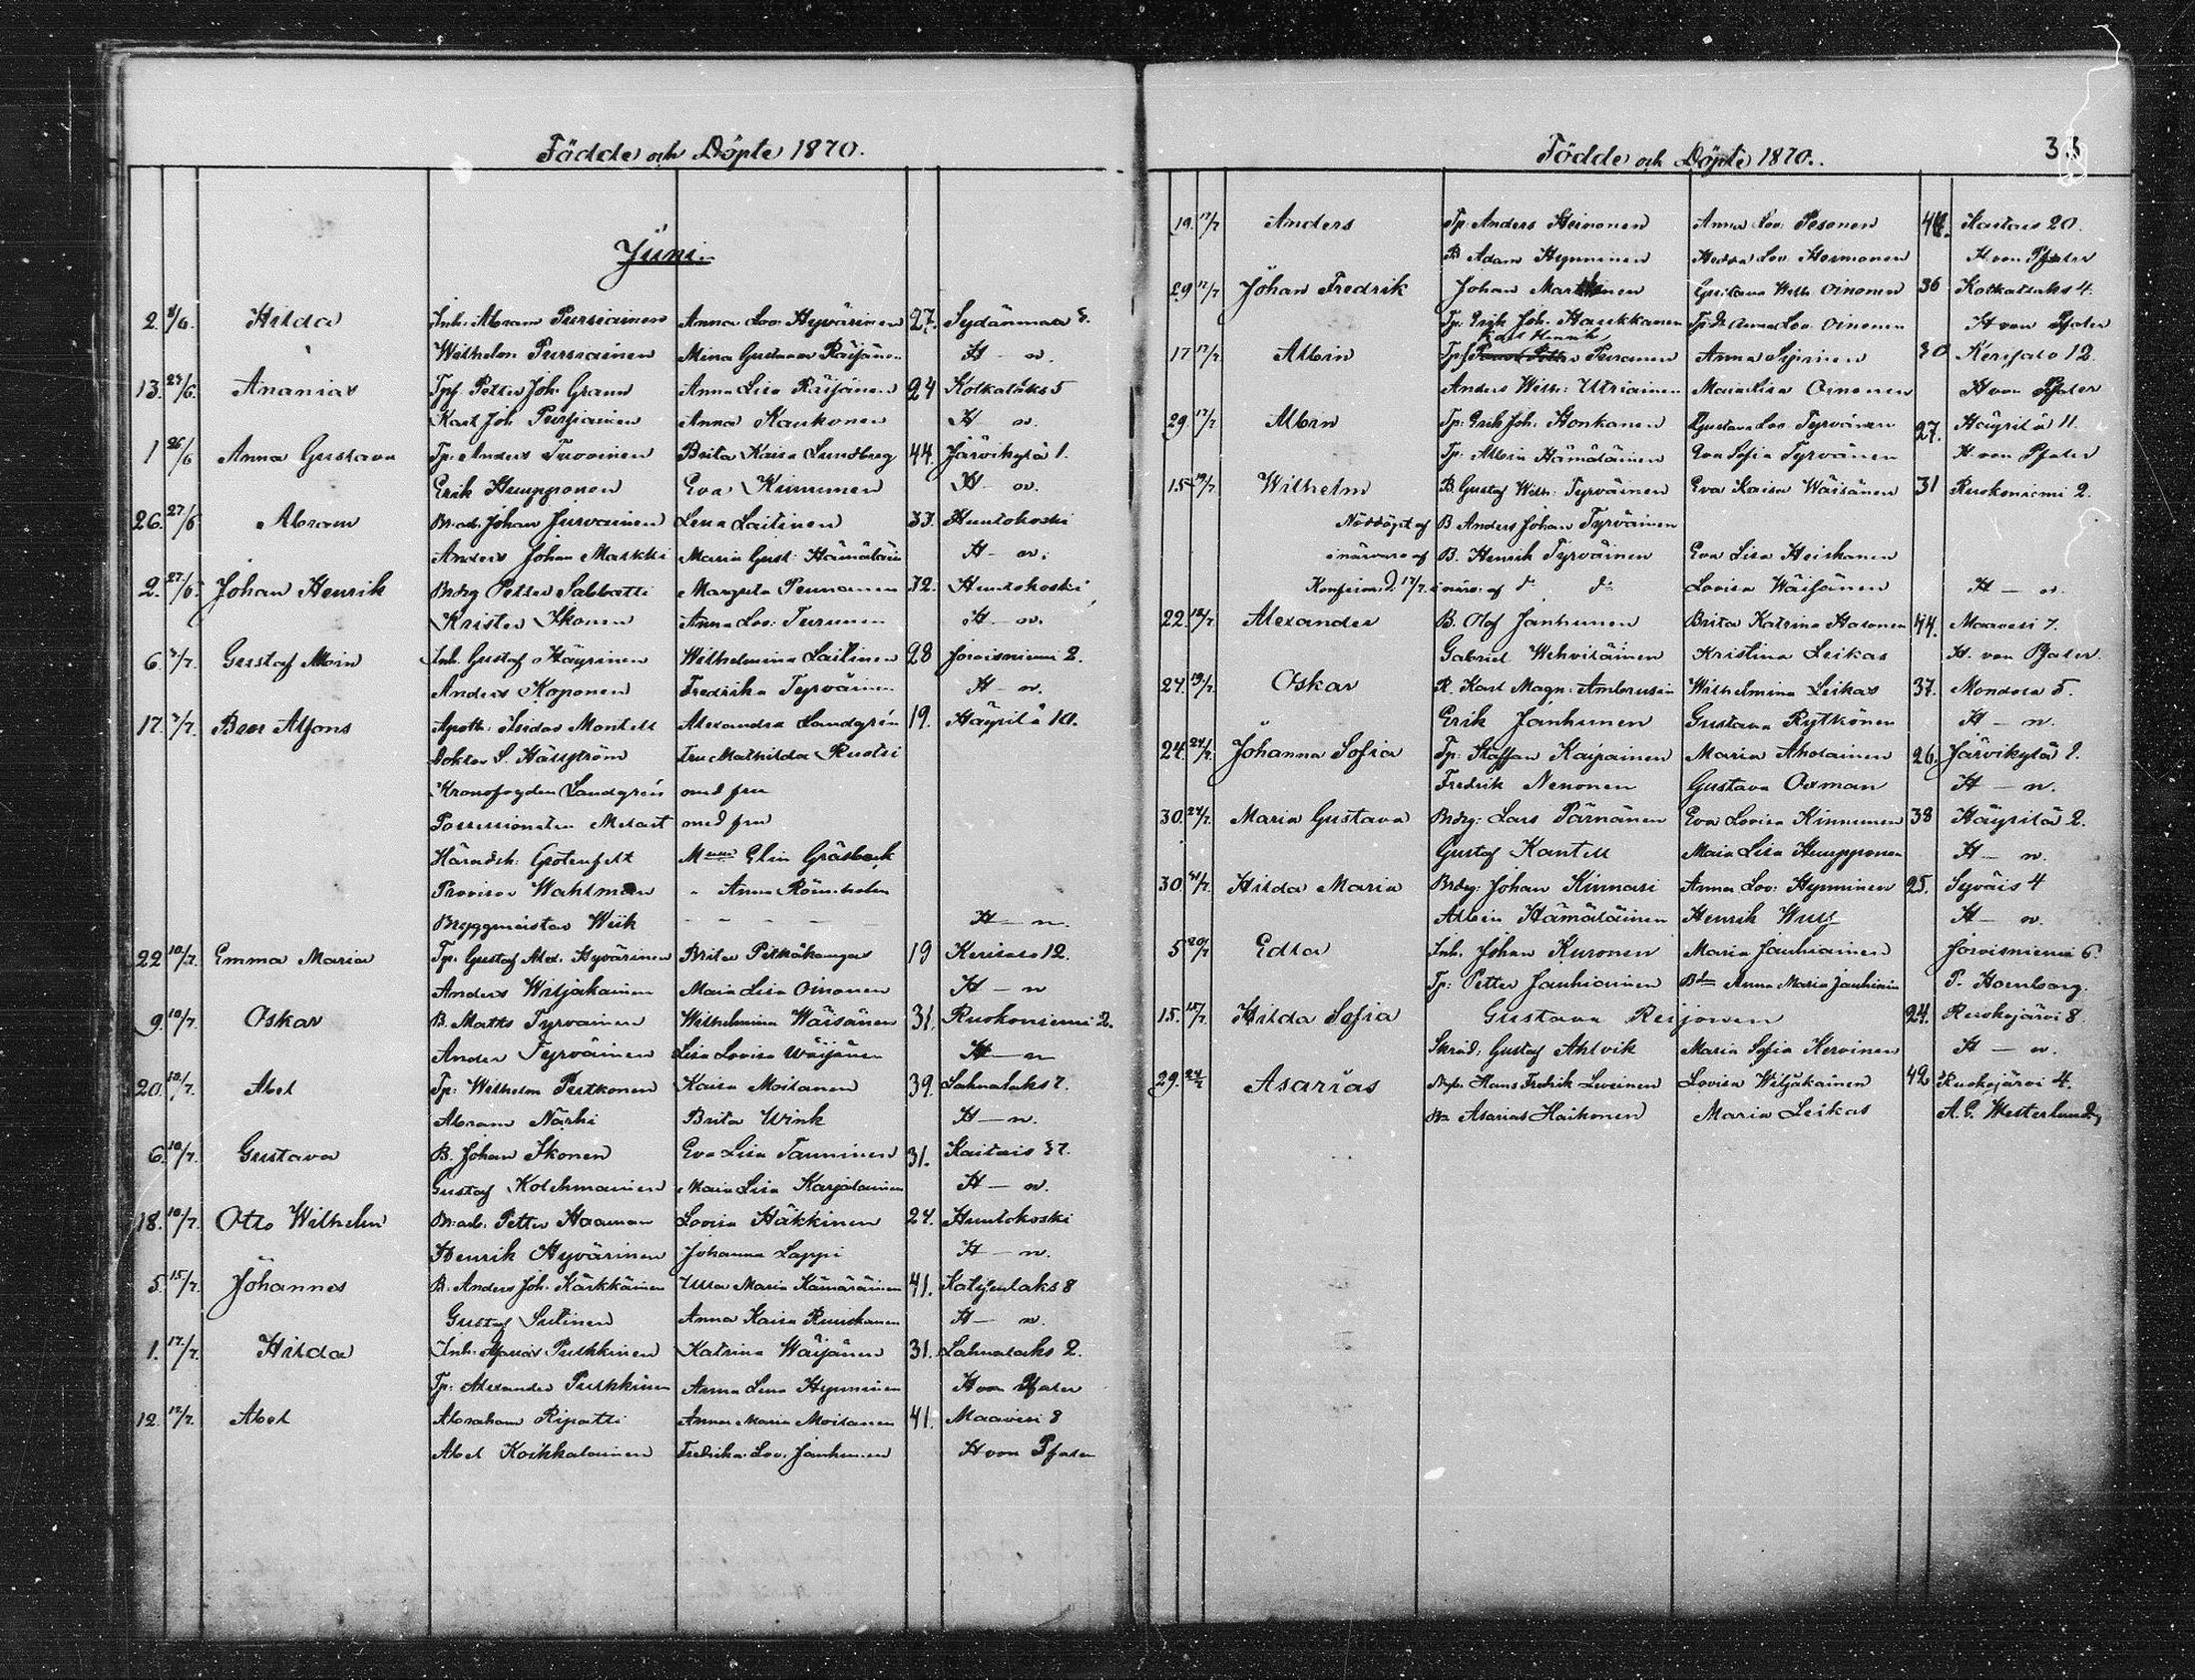 Födde och Döpte 1870.
Juni.
2. 8/6. Hilda Inh. Abram Pursiainen Anna Lov. Hyvärinen 27. Sydänmaa 3.
Wilhelm Pursiainen Mina Gustava Räisänen H – n.
13. 25/6. Ananias Tpf. Petter Joh. Grann Anna Lisa Räisänen 24 Kolkatlaks 5
Karl Joh. Pursiainen Anna Kaukonen H – n.
1 26/6 Anna Gustava Tp. Anders Tuovinen Brita Kaisa Lundberg 44. Järvikylä 1.
Erik Huupponen Eva Kinnunen H – n.
26. 27/6 Abram Br:arb. Johan Jurvainen Lena Laitinen 33. Huutokoski
Anders Johan Markki Maria Gust. Hämäläin H – n.
2. 27/6. Johan Henrik Brdrg Petter Sabbatti Margreta Pennanen 32. Huutokoski
Krister Ikonen Anna Lov. Turunen H – n.
6. 3/7. Gustaf Albin Inh. Gustaf Häyrinen Wilhelmina Laitinen 28 Joroisniemi 2.
Anders Koponen Fredrika Tyrväinen H – n.
17. 3/7. Beor Alfons Apoth. Isidor Montell Alexandra Landgrén 19. Häyrilä 10.
Doktor S. Hällström Fru Mathilda Ruotsi
Kronofogden Landgrén med fru
Possessionaten Melart med fru
Häradsh. Grotenfelt Mlle Elin Gräsbeck
Provisor Wahlman " Anna Römholm
Bryggmästar Wiik – – – – H – n.
22 10/7. Emma Maria Tp. Gustaf Alex. Hyvärinen Brita Pitkäkangas 19 Kerisalo 12.
Anders Wiljakainen Maria Lisa Oinonen H – n
9. 10/7. Oskar B. Matts Tyrväinen Wilhelmina Wäisänen 31. Ruokoniemi 2.
Ander Tyrväinen Lisa Lovisa Wäisänen H – n
20. 10/7. Abel Tp. Wilhelm Partkonen Kaisa Moilanen 39. Lahnalaks 7.
Abram Närhi Brita Wink H – n.
6. 10/7. Gustava B. Johan Ikonen Eva Lisa Tanninen 31. Kaitais 37.
Gustaf Kolehmainen Maria Lisa Karjalainen H – n.
18. 10/7. Otto Wilhelm Br:arb. Petter Haaman Lovisa Häkkinen 24. Huutokoski
Henrik Hyvärinen Johanna Lappi H – n.
5. 15/7. Johannes B. Anders Joh. Kärkkäinen Ulla Maria Kämäräinen 41. Katisenlaks 8
Gustaf Sutinen Anna Kaisa Ruuskanen H – n.
1. 17/7. Hilda Inh. Pulkkinen Katrina Wäisänen 31. Lahnalaks 2.
Tp. Alexander Pulkkinen Anna Lena Hynninen H von Pfaler
12. 17/7. Abel Abraham Ripatti Anna Maria Moilanen 41. Maavesi 8
Abel Koikkalainen Fredrika Lov. Janhunen H von Pfaler
Födde och Döpte 1870. 33
19. 17/7 Anders Tp. Anders Heinonen Anna Lov. Pesonen 4 Kaitais 20.
B Adam Hynninen Hedda Lov. Hermonen H von Pfaler
29 17/7 Johan Fredrik Johan Markkanen Gustava Wilh. Oinonen 36 Kolkatlaks 4.
Tp. Erik Joh. Haukkanen Tp Anna Lov. Oinonen H von Pfaler
Karl Henrik
17 17/7. Albin Tpf Puranen Anna Syrinen 30 Kerisalo 12.
Anders Wilh. Utriainen Maria Lisa Oinonen H von Pfaler
29. 17/7. Albin Tp. Erik Joh. Honkanen Gustava Lov. Tyrväinen 27. Häyrilä 11.
Tp. Albin Hämäläinen Eva Sofia Tyrväinen H. von Pfaler
15. 17/7. Wilhelm B. Gustaf Wilh. Tyrväinen Eva Kaisa Wäisänen 31 Ruokoniemi 2.
Nöddöpt af B Anders Johan Tyrväinen
i närvaro af B. Henrik Tyrväinen Eva Lisa Heiskanen
Konfirmerd. 17/7. i närv. af d: d: Lovisa Wäisänen H – n.
22. 18/7. Alexander B. Olof Janhunen Brita Katrina Hasonen 44. Maavesi 7.
Gabriel Wehviläinen Kristina Leikas H. von Pfaler.
24. 19/7. Oskar R. Karl Magn. Ambrusin Wilhelmina Leikas 37. Mondola 5.
" Erik Janhunen Gustava Rytkönen H – n.
24. 24/7. Johanna Sofia Tp. Staffan Kaipainen Maria Aholainen 26. Järvikylä 2.
Fredrik Nenonen Gustava Oxman H – n.
30. 24/7. Maria Gustava Brdrg. Lars Pärnänen Eva Lovisa Kinnunen 38 Häyrilä 2.
Gustaf Kantell Maia Lisa Huupponen H – n.
30. 31/7. Hilda Maria Brdrg. Johan Kinnari Anna Lov. Hynninen 25. Syväis 4
Albin Hämäläinen Henrik H – n.
5 20/7 Edla Inh. Johan Kuronen Maria Jauhiainen Joroisniemi 6.
Tp. Petter Jauhiainen Anna Maria Jauhiain P. Hornborg.
15. 15/7. Hilda Sofia Gustava Reijonen 24. Ruokojärvi 8
Skräd. Gustaf Ahlvik Maria Sofia Kervinen H – n.
29. 24/7 Asarias Hans Fredrik Leveinen Lovisa Wiljakainen 42 Ruokojärvi 4.
Bn Asarias Haikonen Maria Leikas A. G. Westerlund